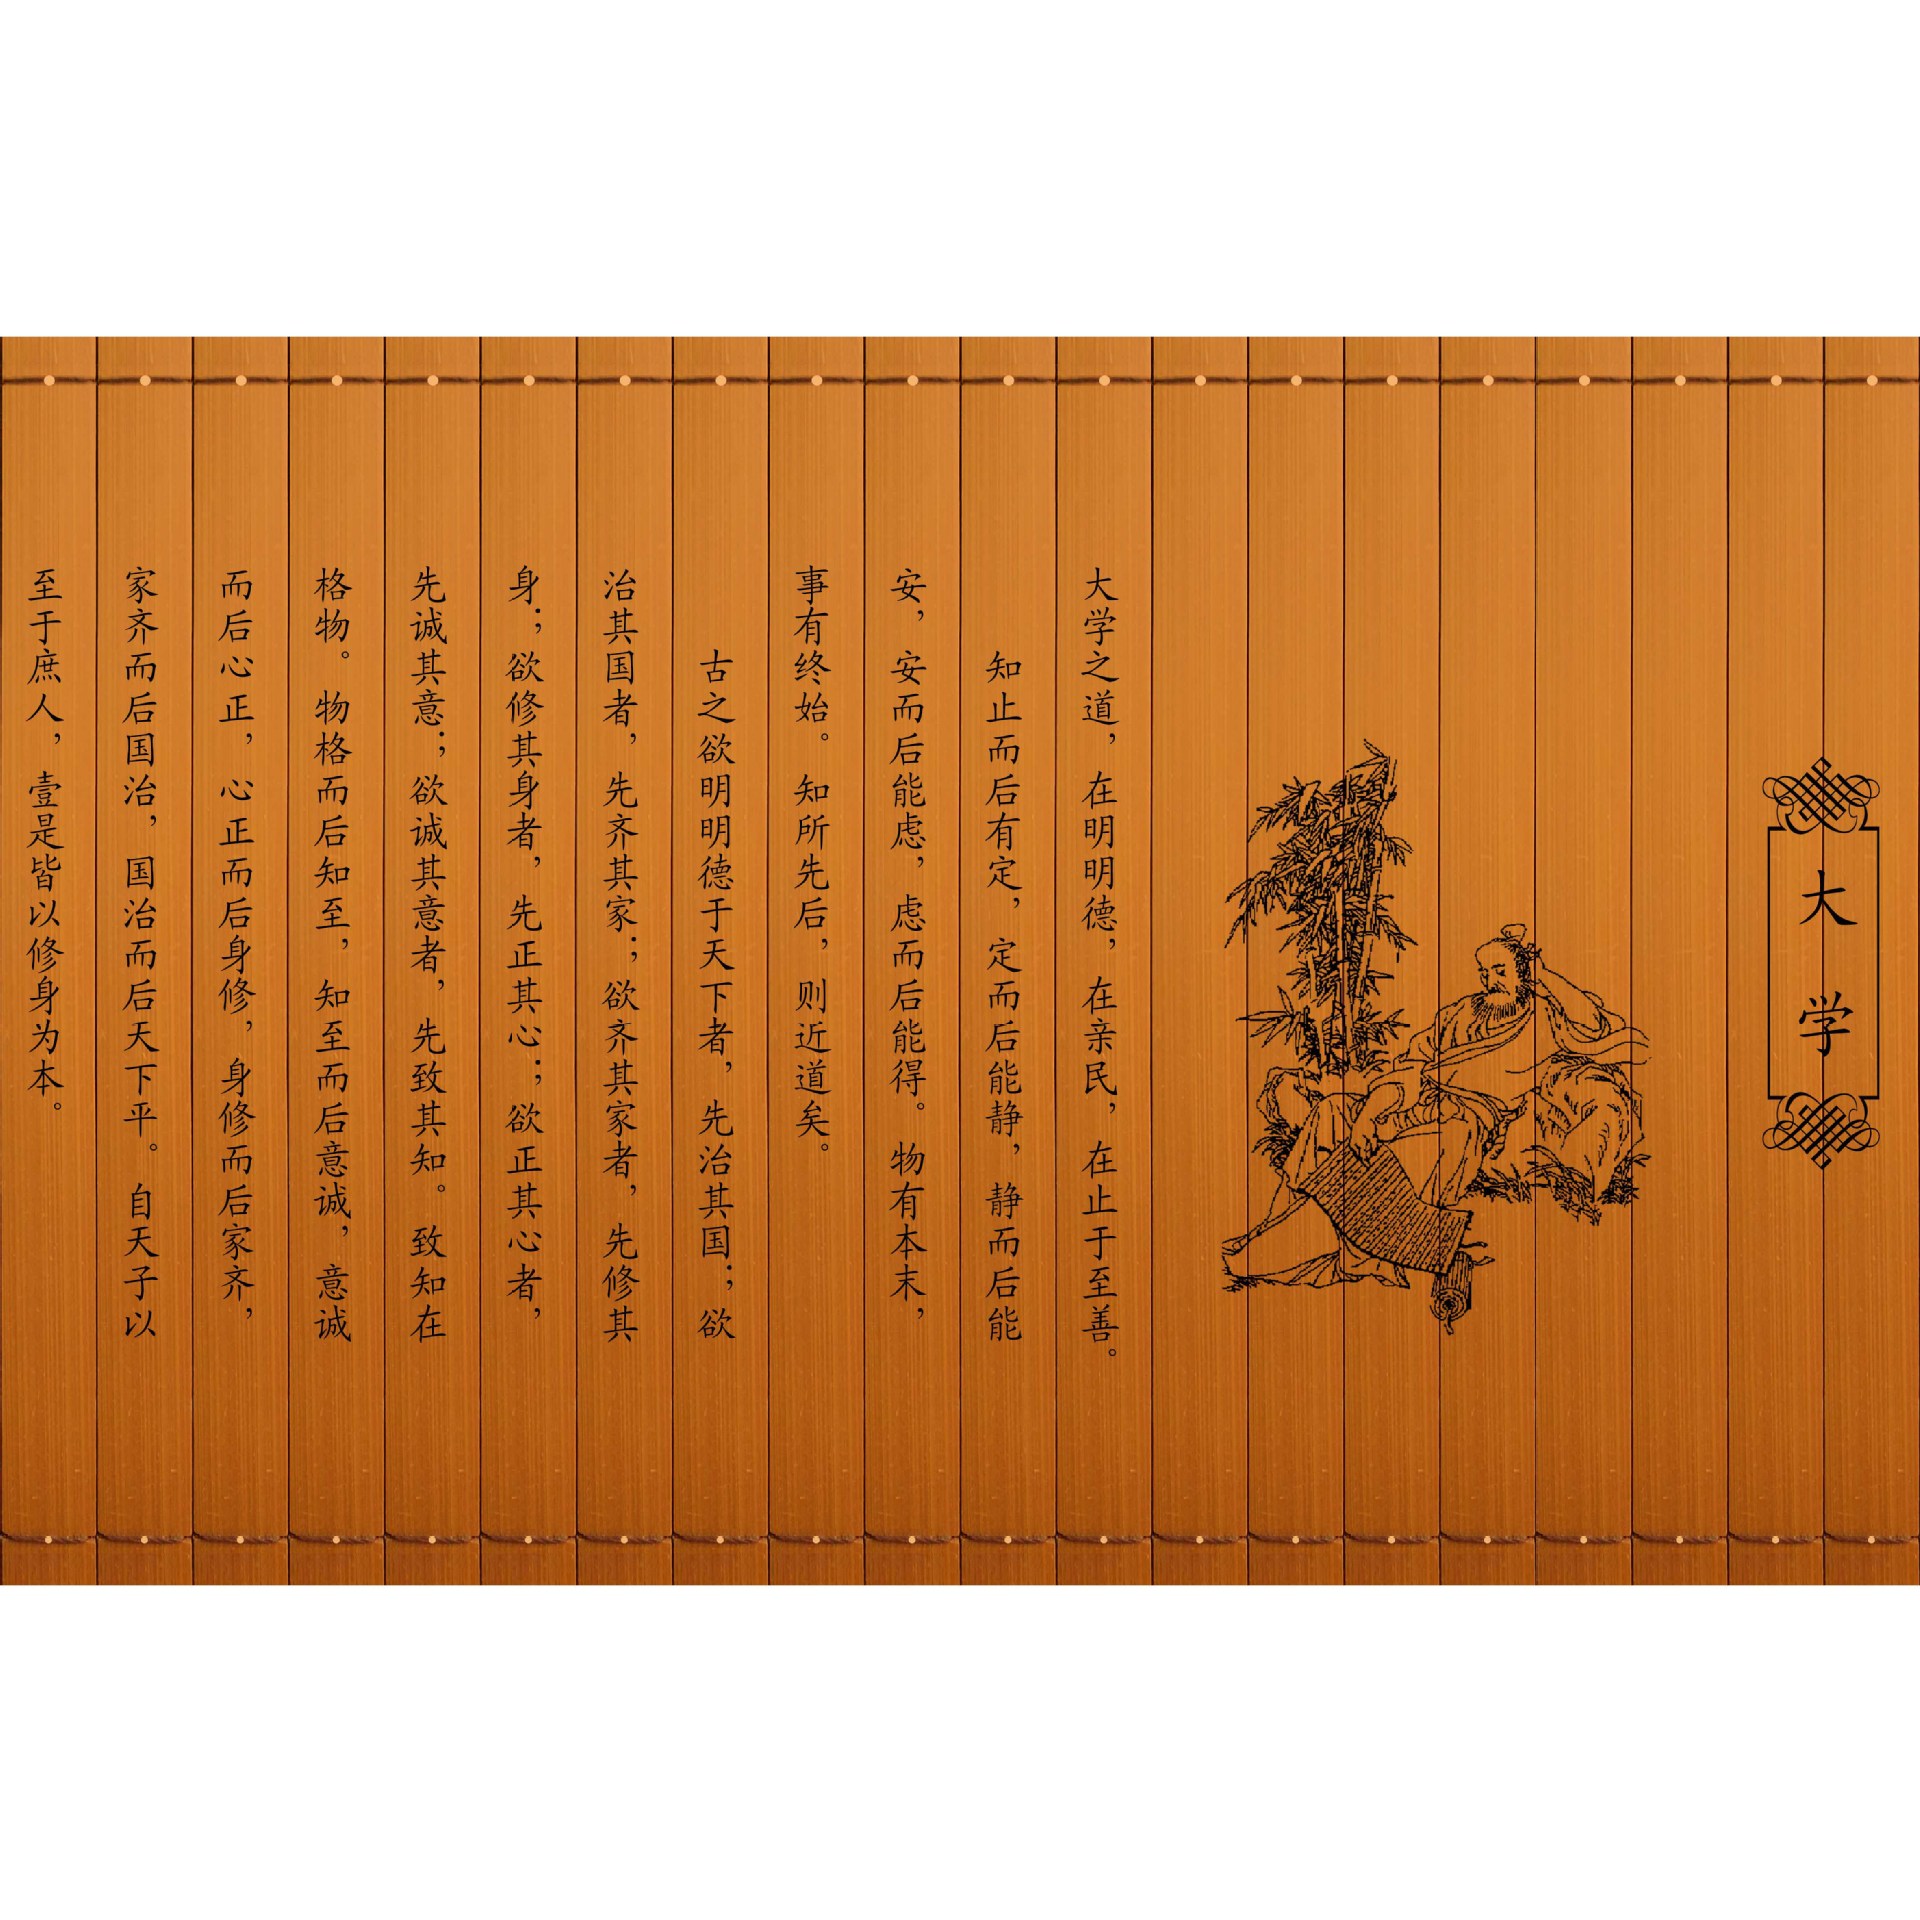 大学
大学之道，在明明德，在亲民，在止于至善。
知止而后有定，定而后能静，静而后能
安，安而后能虑，虑而后能得。物有本末，
事有终始。知所先后，则近道矣。
古之欲明明德于天下者，先治其国；欲
治其国者，先齐其家；欲齐其家者，先修其
身；欲修其身者，先正其心；欲正其心者，
先诚其意；欲诚其意者，先致其知。致知在
格物。物格而后知至，知至而后意诚，意诚
而后心正，心正而后身修，身修而后家齐，
家齐而后国治，国治而后天下平。自天子以
至于庶人，壹是皆以修身为本。